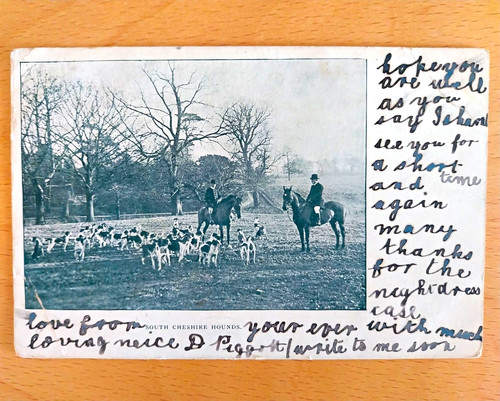 hope you
are well
as you
say I shant
see you for
a short time
and
again
many
thanks
for the
nightdress
case
love from SOUTH CHESHIRE HOUNDS. your ever with much
loving neice D Piggott / write to me soon